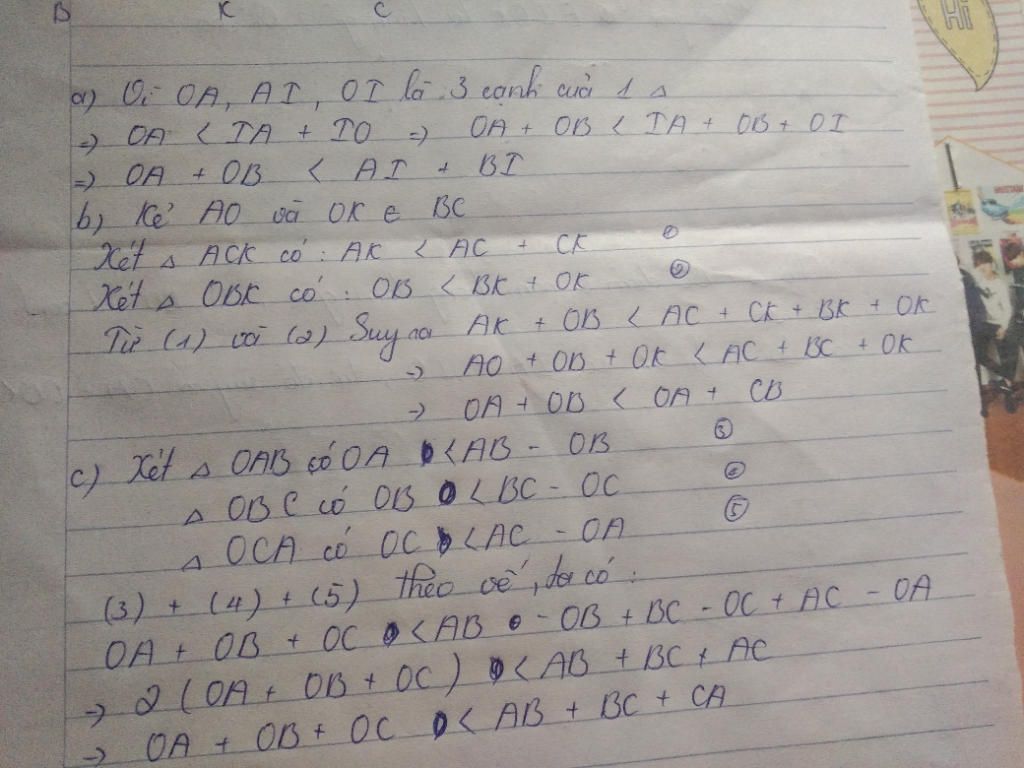 B K C
a) Vì OA, AI, OI là 3 cạnh của 1 △
=> OA < IA + IO => OA + OB < IA + OB + OI
=> OA + OB < AI + BI
b) Kẻ AO và OK e BC
Xét △ ACK có : AK < AC + CK ①
Xét △ OBK có : OB < BK + OK ②
Từ (1) và (2) Suy ra AK + OB < AC + CK + BK + OK
=> AO + OB + OK < AC + BC + OK
=> OA + OB < OA + CB
c) Xét △ OAB có OA < AB - OB ③
△ OBC có OB < BC - OC ④
△ OCA có OC < AC - OA ⑤
(3) + (4) + (5) theo vế, ta có :
OA + OB + OC < AB - OB + BC - OC + AC - OA
=> 2 (OA + OB + OC) < AB + BC + AC
=> OA + OB + OC < AB + BC + CA
Hi